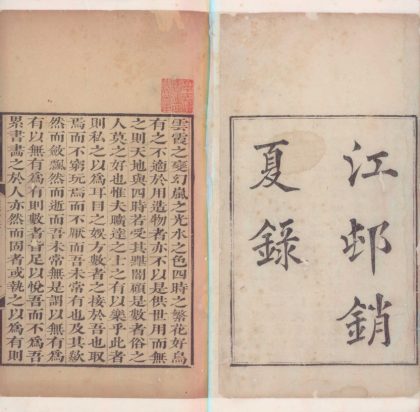 江邨銷
夏錄
雲霞之變幻嵐之光水之色四時之繁花好鳥
有之不適於用造物者亦不以是供世用而無
之則天地與四時若受其黯闇顧是數者俗之
人莫之好也惟夫曠達之士之有以樂乎此者
則私之以為耳目之娛方數者之接於吾也取
焉而不窮玩焉而不厭而吾未常有也及其歘
然而斂飄然而逝而吾未常無是謂以無有為
有以無有為有則數者皆足以悅吾而不為吾
累書畫之於人亦然而固者或執之以為有則